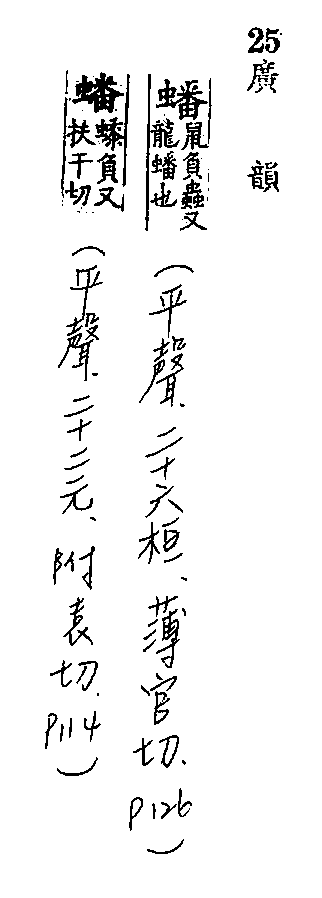 25 廣韻
蟠鼠負蟲又龍蟠也(平聲、二十六桓、薄官切、P126)
蟠負又扶干切(平聲、二十二元、附袁切、P114)